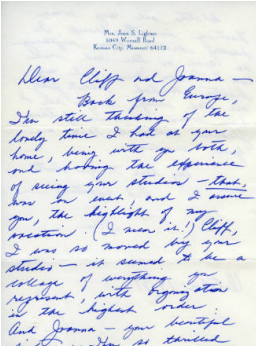 Mrs. Jean S. Lighton
5049 Wornall Road
Kansas City, Missouri 64112
Dear Cliff and Joanna —
Back from Europe,
I'm still thinking of the
lovely time I had at your
home, being with you both,
and having the experience
of seeing your studios — that,
was an event, and I assure
you, the highlight of my
vacation. (I mean it!) Cliff,
I was so moved by your
studio — it seemed to be a
collage of everything you
represent, with organization
in the highest order.
And Joanna — your beautiful
so thrilled